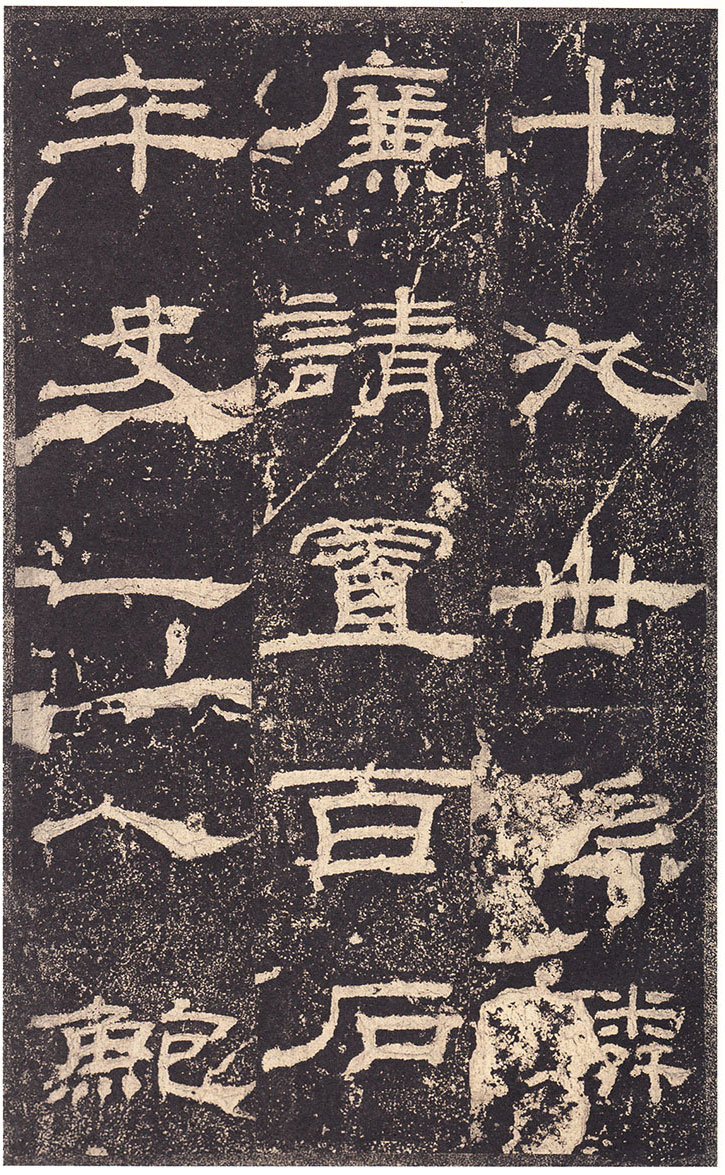 十九世孫麟
廉請置百石
卒史一人鮑